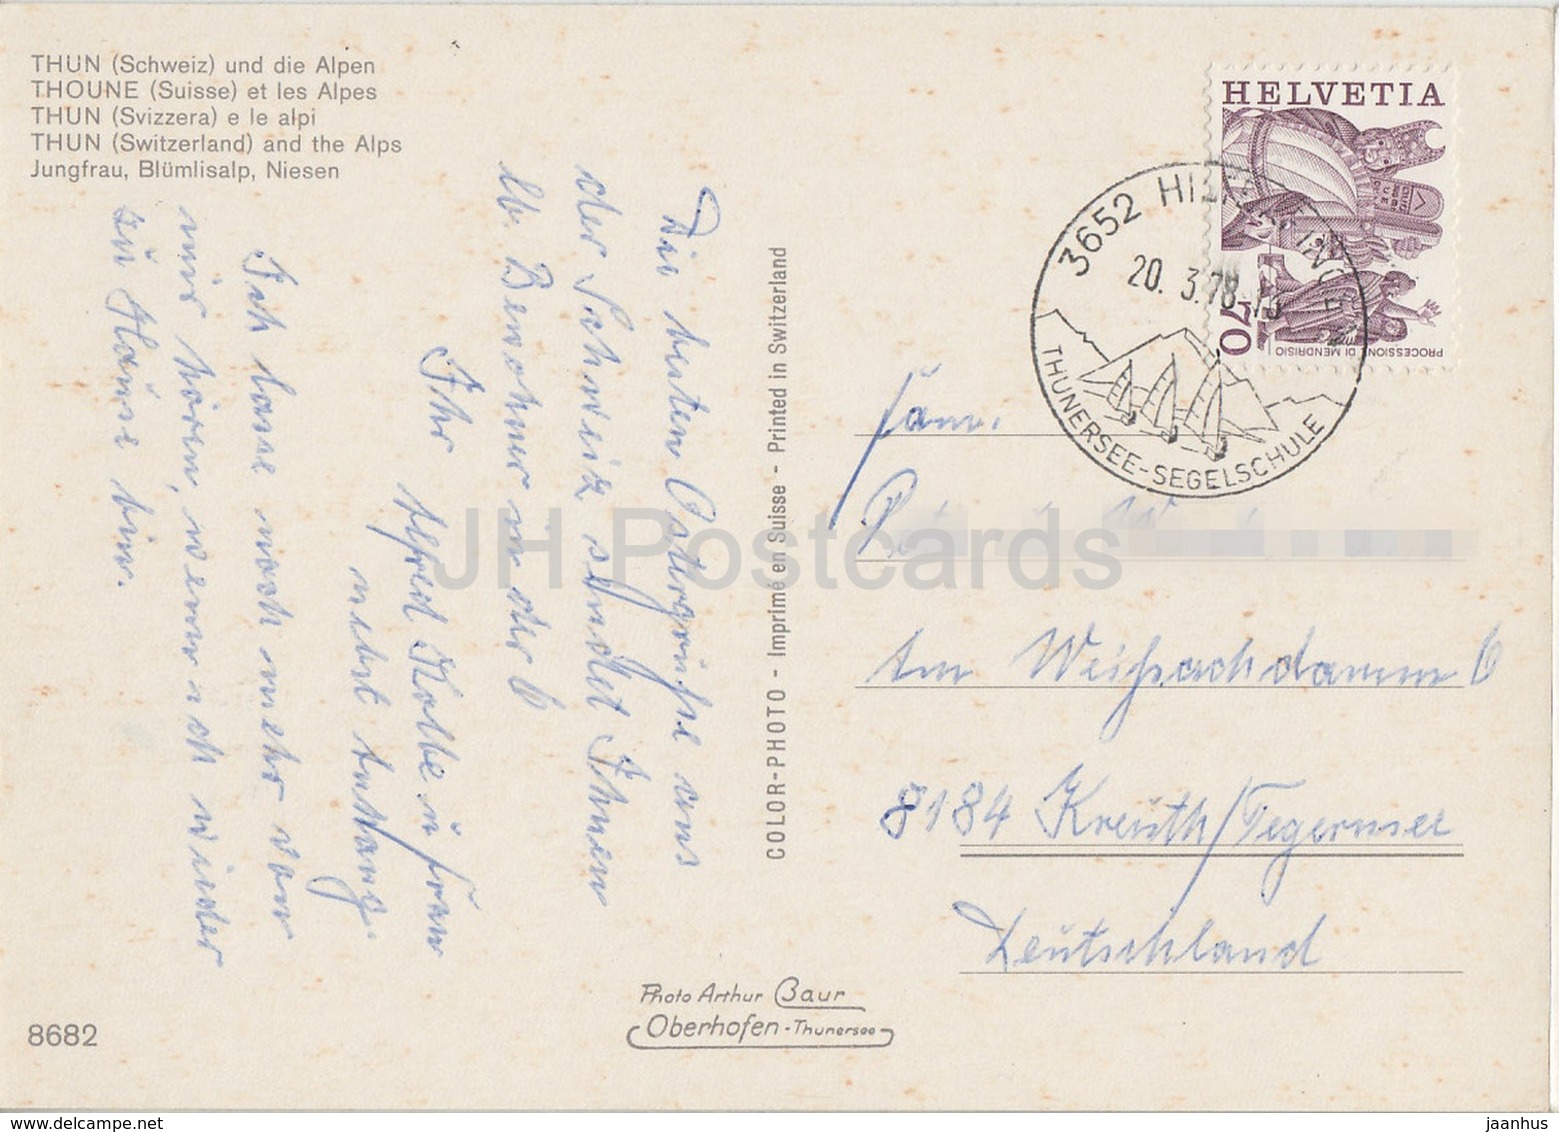 THUN (Schweiz) und die Alpen
THOUNE (Suisse) et les Alpes
THUN (Svizzera) e le alpi
THUN (Switzerland) and the Alps
Jungfrau, Blümlisalp, Niesen
Die besten Ostergrüße aus
der Schweiz sendet Ihnen
lb. Bewohner in der 6
Ihr Alfred Kolbe u Frau
nebst Anhang.
Ich lasse noch mehr von
mir hören, wenn ich wieder
zu Hause bin.
COLOR-PHOTO - Imprimé en Suisse - Printed in Switzerland
HELVETIA
70
PROCESSIONE DI MENDRISIO
3652 HILTERFINGEN
20. 3.78
THUNERSEE-SEGELSCHULE
Fam.
Am Weißachdamm 6
8184 Kreuth/Tegernsee
Deutschland
Photo Arthur Baur
Oberhofen-Thunersee
8682
JH Postcards
jaanhus